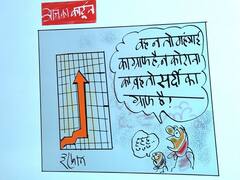 आज का कार्टून
यह न तो महंगाई
का ग्राफ है, न कोरोना
का, यह तो सर्दी का
ग्राफ है!
इरफान